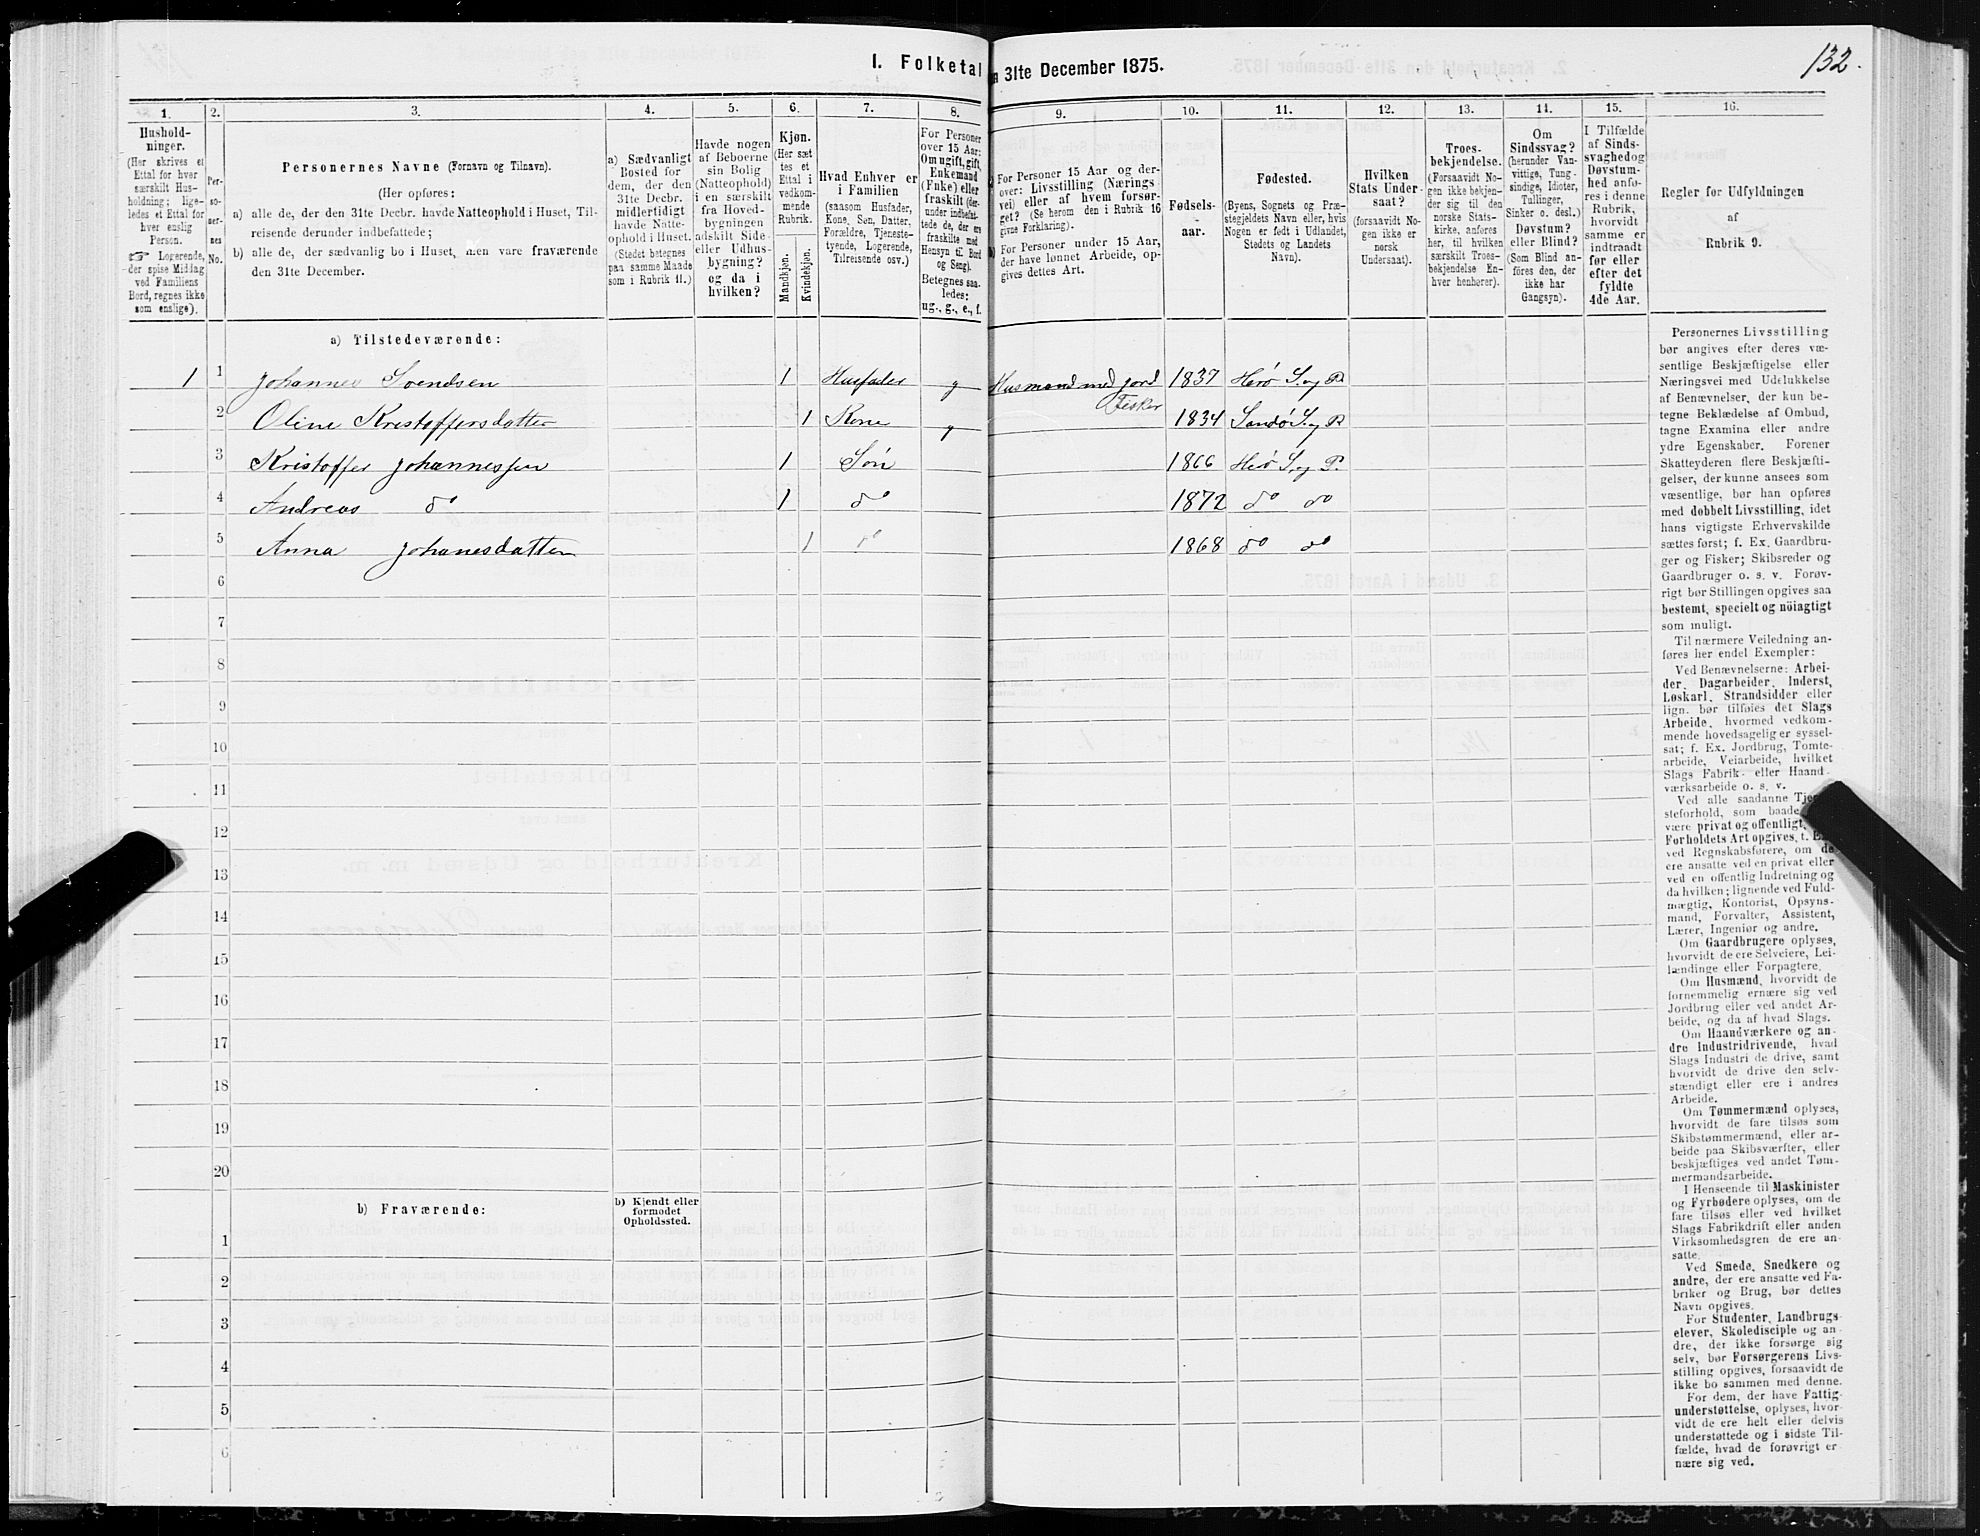 132.
I. Folketal
31te December 1875.
1.
2.
3.
4.
5.
6.
7.
8.
9.
10.
11.
12.
13.
14.
15.
16.
Hushold-
ninger.
(Her skrives et
Ettal for hver
særskilt Hus-
holdning; lige-
ledes et Ettal for
hver enslig
Person.
☞ Logerende,
der spise Middag
ved Familiens
Bord, regnes ikke
som enslige).
Per-
so-
ner-
nes
No.
Personernes Navne (Fornavn og Tilnavn).
(Her opføres:
a) alle de, der den 31te Decbr. havde Natteophold i Huset, Til-
reisende derunder indbefattede;
b) alle de, der sædvanlig bo i Huset, men vare fraværende
den 31te December.
a) Sædvanligt
Bosted for
dem, der den
31te Decbr.
midlertidigt
havde Natte-
ophold i Huset.
(Stedet betegnes
paa samme Maade
som i Rubrik 11.)
Havde nogen
af Beboerne
sin Bolig
(Natteophold)
i en særskilt
fra Hoved-
bygningen
adskilt Side-
eller Udhus-
bygning?
og da i
hvilken?
Kjøn.
(Her sæt-
tes et
Ettal i
vedkom-
mende
Rubrik.
Mandkjøn.
Kvindekjøn.
Hvad Enhver er
i Familien
(saasom Husfader,
Kone, Søn, Datter,
Forældre, Tjeneste-
tyende, Logerende,
Tilreisende osv.)
For Personer
over 15 Aar:
Om ugift, gift,
Enkemand
(Enke) eller
fraskilt (der-
under indbefat-
tede de, der ere
fraskilte med
Hensyn til Bord
og Seng).
Betegnes saa-
ledes:
ug., g., e., f.
For Personer 15 Aar og der-
over: Livsstilling (Nærings-
vei) eller af hvem forsør-
get? (Se herom den i Rubrik 16
givne Forklaring).
For Personer under 15 Aar,
der have lønnet Arbeide, op-
gives dettes Art.
Fødsels-
aar.
Fødested.
(Byens, Sognets og Præ-
stegjeldets Navn eller, hvis
Nogen er født i Udlandet,
Stedets og Landets
Navn).
Hvilken
Stats Under-
saat?
(forsaavidt No-
gen ikke er
norsk
Undersaat).
Troes-
bekjendelse.
(Forsaavidt No-
gen ikke bekjen-
der sig til den
norske Stats-
kirke, anføres
her, til hvilken
særskilt Troes-
bekjendelse En-
hver henhører).
Om
Sindssvag?
(herunder Van-
vittige, Tung-
sindige, Idioter,
Tullinger,
Sinker o. desl.)
Døvstum?
eller Blind?
(Som Blind an-
føres den, der
ikke har
Gangsyn).
I Tilfælde
af Sinds-
svaghed og
Døvstum-
hed anfø-
res i denne
Rubrik,
hvorvidt
samme er
indtraadt
før eller
efter det
fyldte
4de Aar.
Regler for Udfyldningen
af
Rubrik 9.
a) Tilstedeværende:
1 1 Johannes Svendsen 1 Husfader g Husmand med jord 1837 Herø S. og P.
Fisker
2 Oline Kristoffersdatter 1 Kone g 1834 Sandø S. og P.
3 Kristoffer Johannessen 1 Søn 1866 Herø S. og P.
4 Andreas do 1 do 1872 do do
5 Anna Johanesdatter 1 do 1868 do do
6
7
8
9
10
11
12
13
14
15
16
17
18
19
20
b) Fraværende:
b) Kjendt eller
formodet
Opholdssted.
1
2
3
4
5
6
Personernes Livsstilling
bør angives efter deres væ-
sentlige Beskjæftigelse eller
Næringsvei med Udelukkelse
af Benævnelser, der kun be-
tegne Beklædelse af Ombud,
tagne Examina eller andre
ydre Egenskaber. Forener
Skatteyderen flere Beskjæfti-
gelser, der kunne ansees som
væsentlige, bør han opføres
med dobbelt Livsstilling, idet
hans vigtigste Erhvervskilde
sættes først; f. Ex. Gaardbru-
ger og Fisker; Skibsreder og
Gaardbruger o. s. v. Forøv-
rigt bør Stillingen opgives saa
bestemt, specielt og nöiagtigt
som muligt.
Til nærmere Veiledning an-
føres her endel Exempler:
Ved Benævnelserne: Arbei-
der, Dagarbeider, Inderst,
Løskarl, Strandsidder eller
lign. bør tilføies det Slags
Arbeide, hvormed vedkom-
mende hovedsagelig er syssel-
sat; f. Ex. Jordbrug, Tomte-
arbeide, Veiarbeide, hvilket
Slags Fabrik- eller Haand-
værksarbeide o. s. v.
Ved alle saadanne
steforhold, som baade
være privat og offentligt,
Forholdets Art opgives, t.
ved Regnskabsførere, om de
ere ansatte ved en privat eller
ved en offentlig Indretning og
da hvilken; lignende ved Fuld-
mægtig, Kontorist, Opsyns-
mand, Forvalter, Assistent,
Lærer, Ingeniør og andre.
Om Gaardbrugere oplyses,
hvorvidt de ere Selveiere, Lei-
lændinge eller Forpagtere.
Om Husmænd, hvorvidt de
fornemmelig ernære sig ved
Jordbrug eller ved andet Ar-
beide, og da af hvad Slags.
Om Haandværkere og an-
dre Industridrivende, hvad
Slags Industri de drive, samt
hvorvidt de drive den selv-
stændigt eller ere i andres
Arbeide.
Om Tømmermænd oplyses,
hvorvidt de fare tilsøs som
Skibstømmermænd, eller ar-
beide paa Skibsværfter, eller
beskjæftiges ved andet Tøm-
mermandsarbeide.
I Henseende til Maskinister
og Fyrbødere oplyses, om de
fare tilsøs eller ved hvilket
Slags Fabrikdrift eller anden
Virksomhedsgren de ere an-
satte.
Ved Smede, Snedkere og
andre, der ere ansatte ved Fa-
briker og Brug, bør dettes
Navn opgives.
For Studenter, Landbrugs-
elever, Skoledisciple og an-
dre, der ikke forsørge sig
selv, bør Forsørgerens Livs-
stilling opgives, forsaavidt de
ikke bo sammen med denne.
For dem, der have Fattig-
understøttelse, oplyses, hvor-
vidt de ere helt eller delvis
understøttede og i sidste Til-
fælde, hvad de forøvrigt er-
nære sig ved.